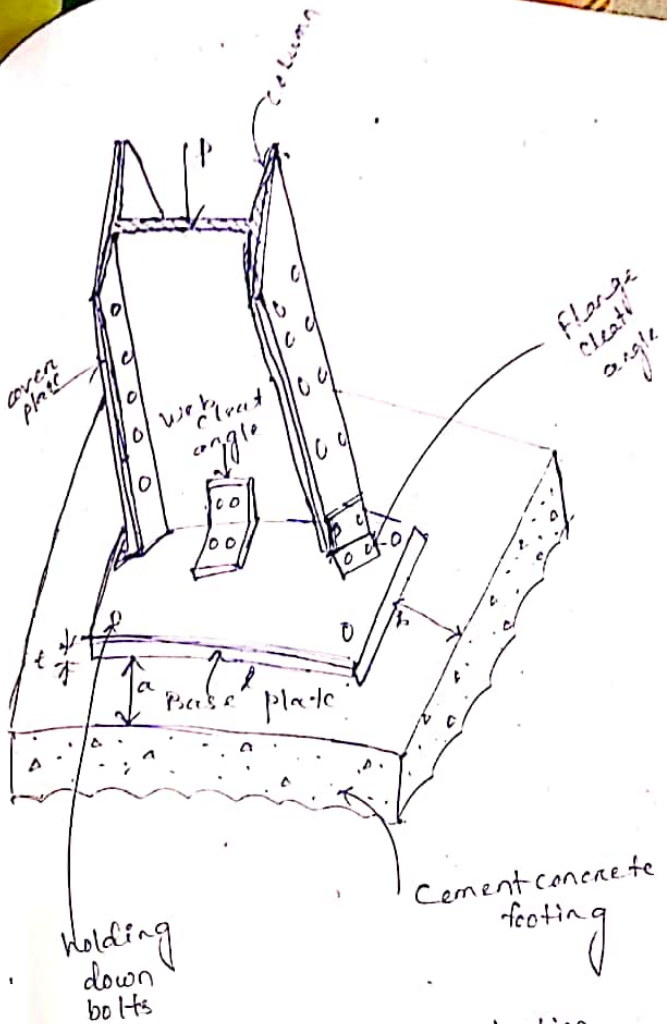 column
P
Flange
cleat
angle
cover
plate
Web
cleat
angle
t
a
l
b
Base plate
Cement concrete
footing
holding
down
bolts